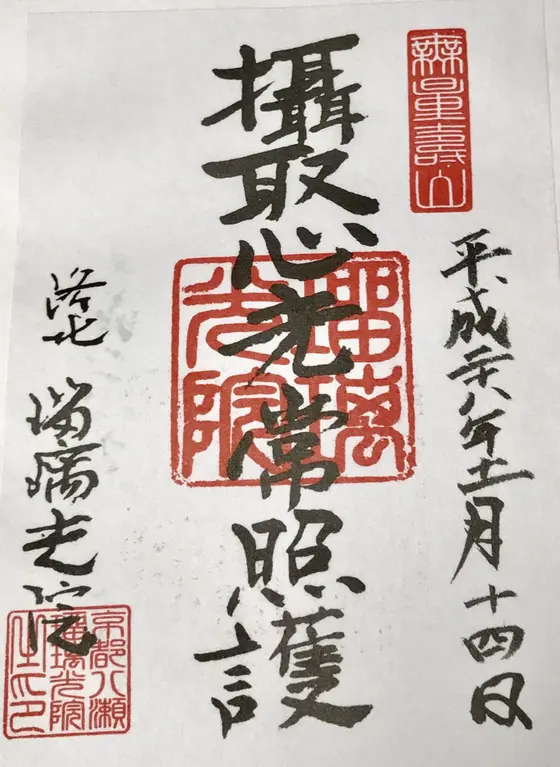 無量壽山
平成廿八年十一月十四日
攝取心光常照護
瑠璃
光院
洛北 瑠璃光院
京都八瀬
瑠璃光院